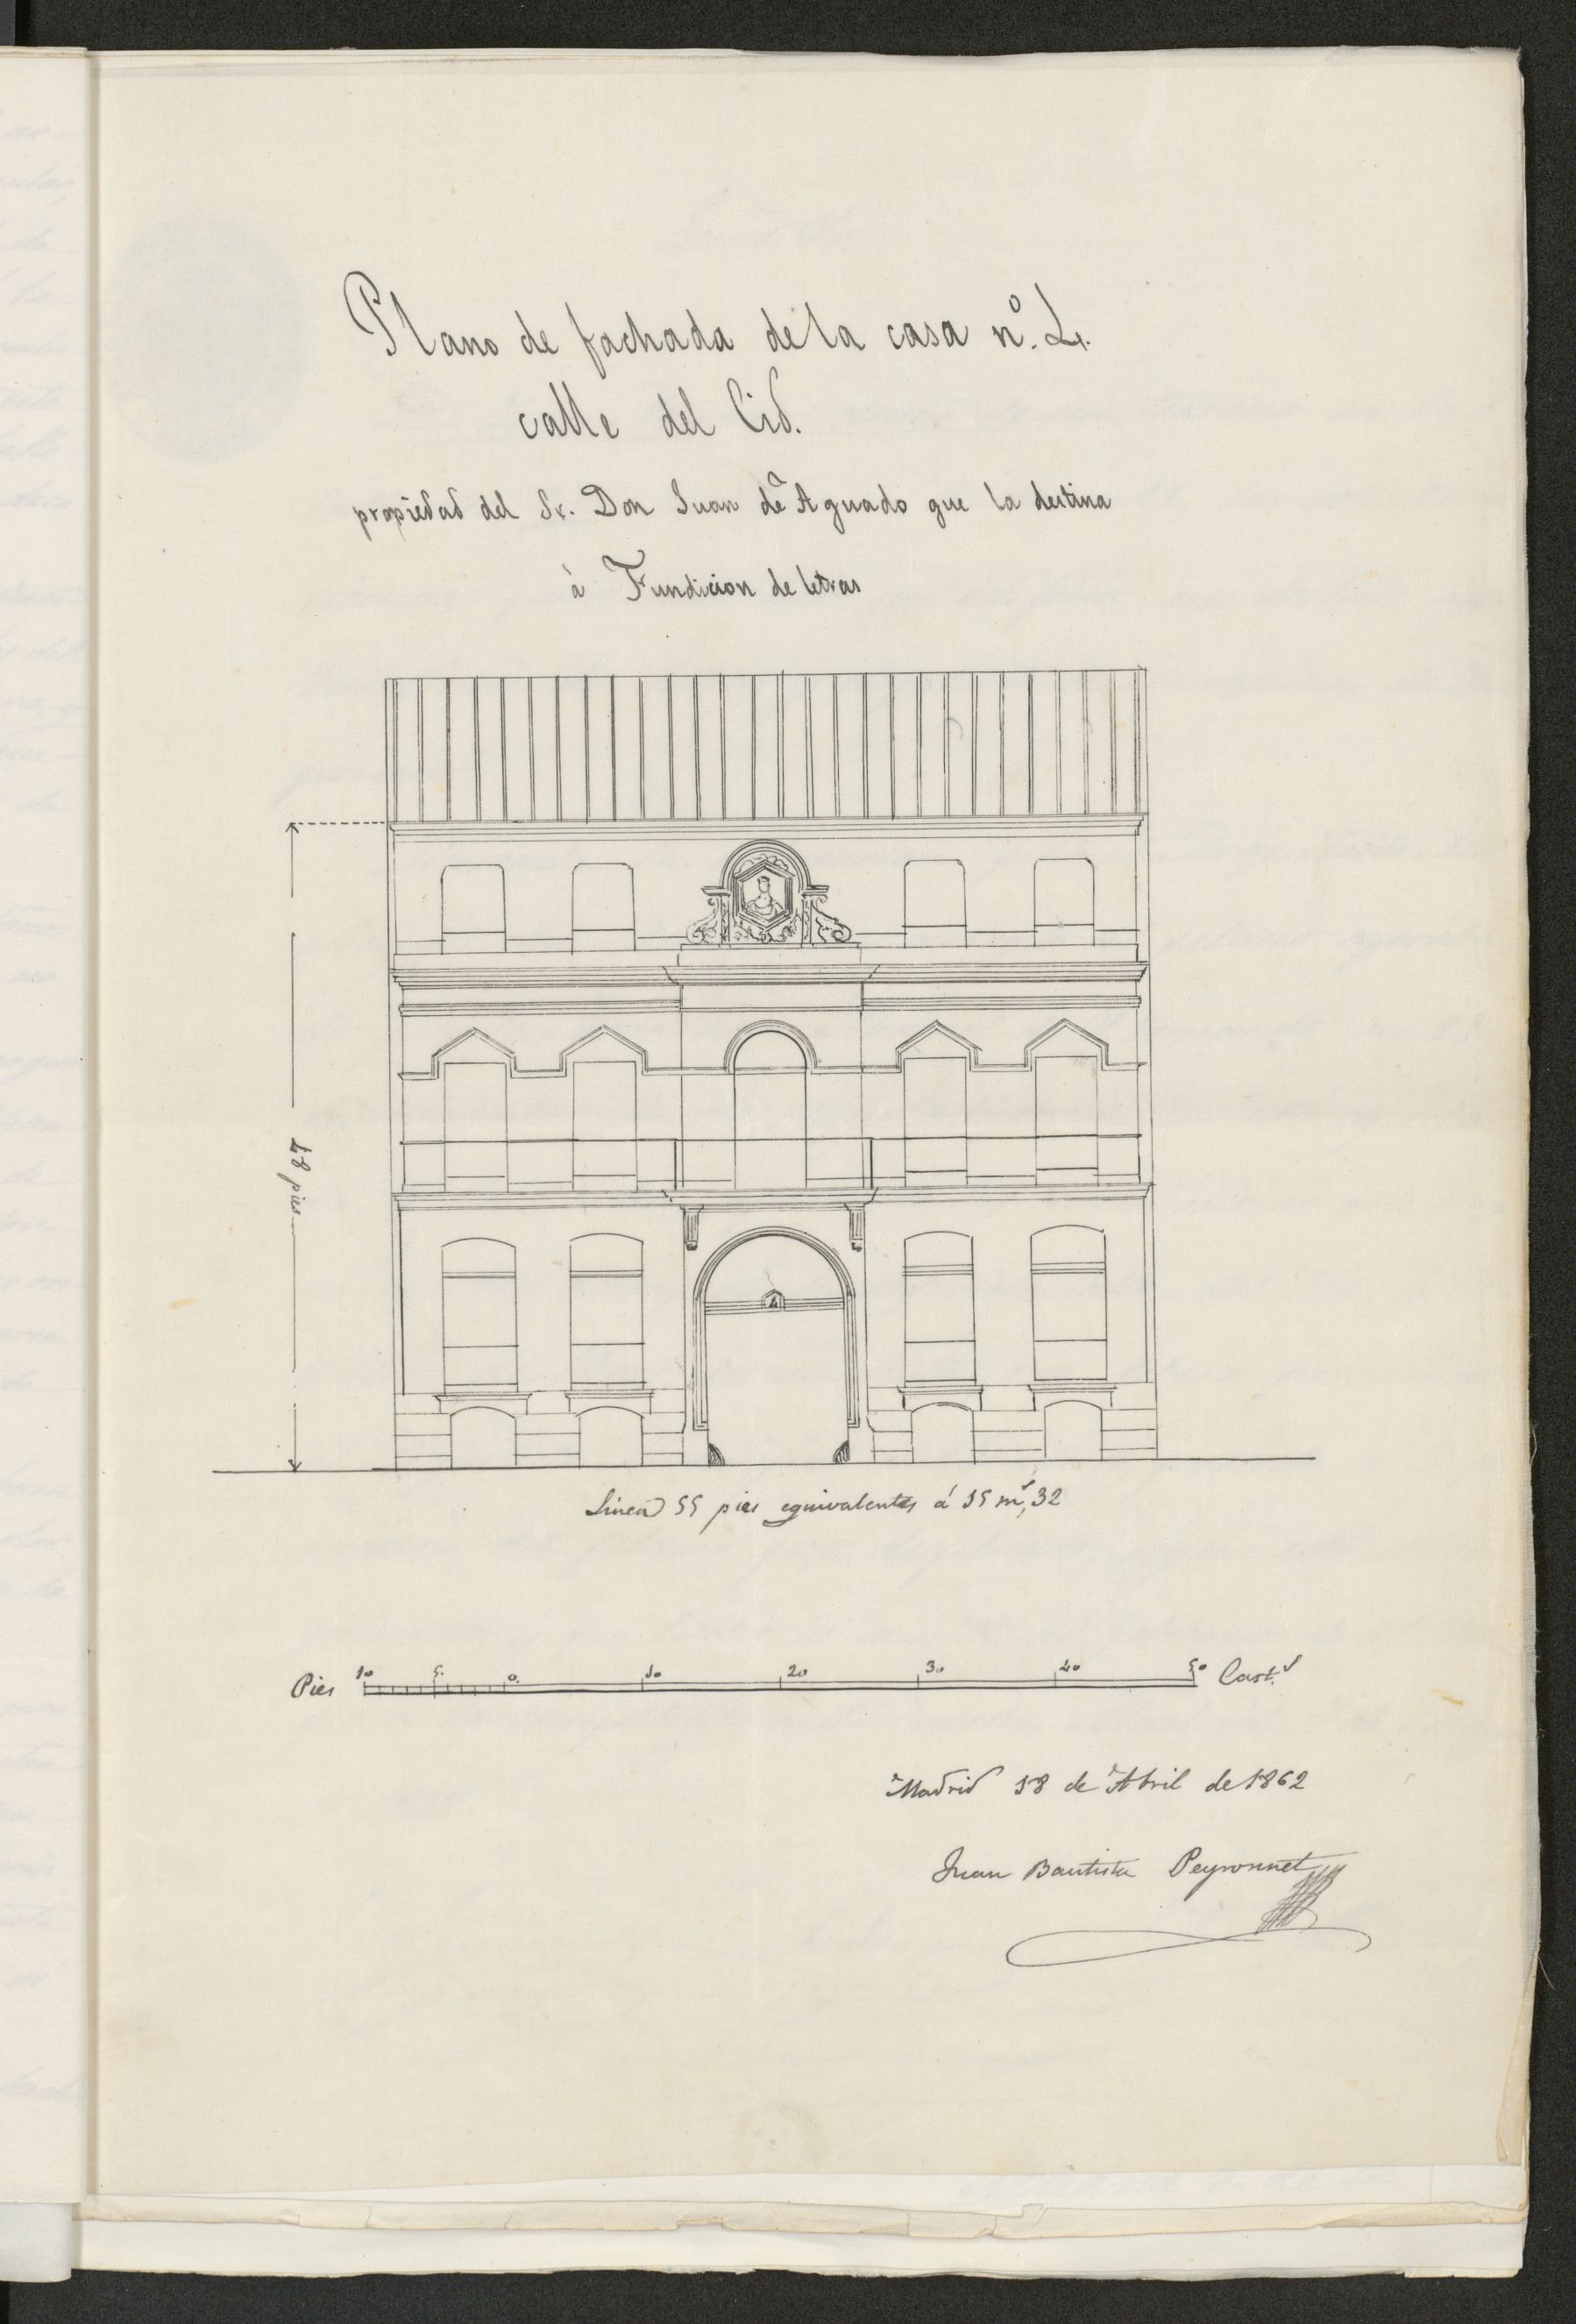 Plano de fachada de la casa nº. 4.
calle del Cid.
propiedad del Sr. Don Juan de Aguado que la destina
à Fundicion de letras
48 pies
4
Linea 55 pies equivalentes á 15 ms, 32
Pies 10 5 0. 10 20 30 40 50 Cast.s
Madrid 18 de Abril de 1862
Juan Bautista Peyronnet